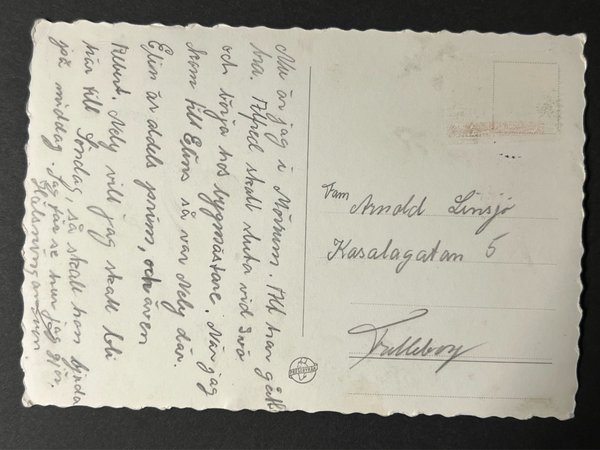 Nu är jag i Mörrum. Allt har gått
bra. Alfred skall sluta vid Ivö
och börja hos byggmästare. När jag
kom till Elins så var Nely där.
Elin är alldels prima, och även
Robert. Nely vill jag skall bli
här till Söndag, så skall hon bjuda
på middag. Jag får se hur jag gör.
Hälsningar
Fam Arnold Linsjö
Kasalagatan 5
Trelleborg
PRESSBYRÅN